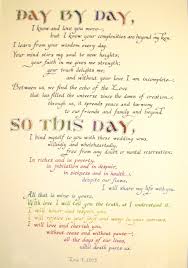 DAY BY DAY,
I know and love you more—
but I know your complexities are beyond my ken.
I learn from your wisdom every day.
Your mind stirs my soul to new heights;
your faith in me gives me strength;
your touch delights me;
and without your love I am incomplete—
Between us, we find the echo of the Love
that has filled the universe since the dawn of creation,
through us, it spreads peace and harmony
to our family and friends and beyond.
SO THIS DAY,
I bind myself to you with these wedding vows,
solemnly and wholeheartedly,
free from any doubt or mental reservation:
In riches and in poverty,
in jubilation and in despair,
in sickness and in health,
despite our flaws,
I will share my life with you.
All that is mine is yours.
With love I will tell you the truth, as I understand it.
I will honor and respect you,
I will rejoice in your joys and weep in your sorrows.
I will love and cherish you,
without cease and without pause—
all the days of our lives,
until death parts us.